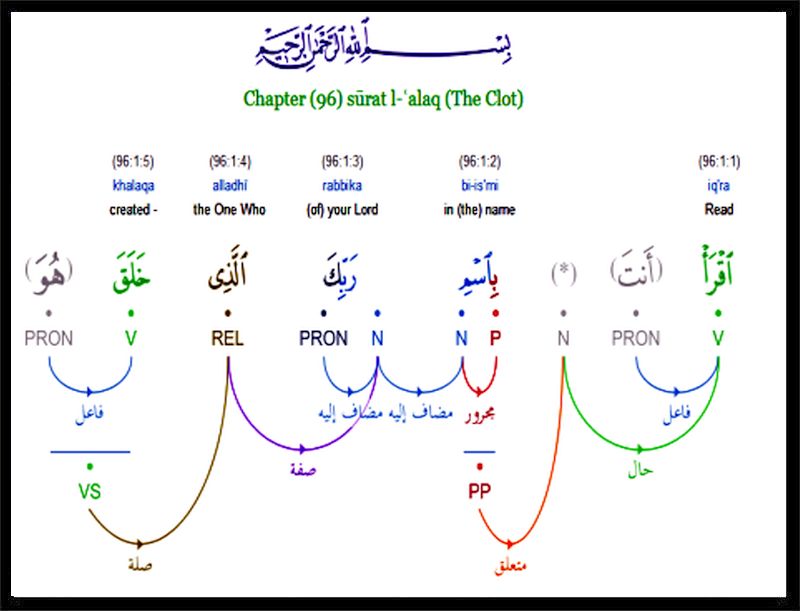 بِسْمِ ٱللَّهِ ٱلرَّحْمَٰنِ ٱلرَّحِيمِ
Chapter (96) sūrat l-ʿalaq (The Clot)
(96:1:5) (96:1:4) (96:1:3) (96:1:2) (96:1:1)
khalaqa alladhī rabbika bi-is'mi iq'ra
created - the One Who (of) your Lord in (the) name Read
ٱقْرَأْ (أَنتَ) (*) بِٱسْمِ رَبِّكَ ٱلَّذِى خَلَقَ (هُوَ)
PRON V REL PRON N N P N PRON V
فاعل مجرور مضاف إليه مضاف إليه فاعل
حال صفة
VS PP
متعلق صلة